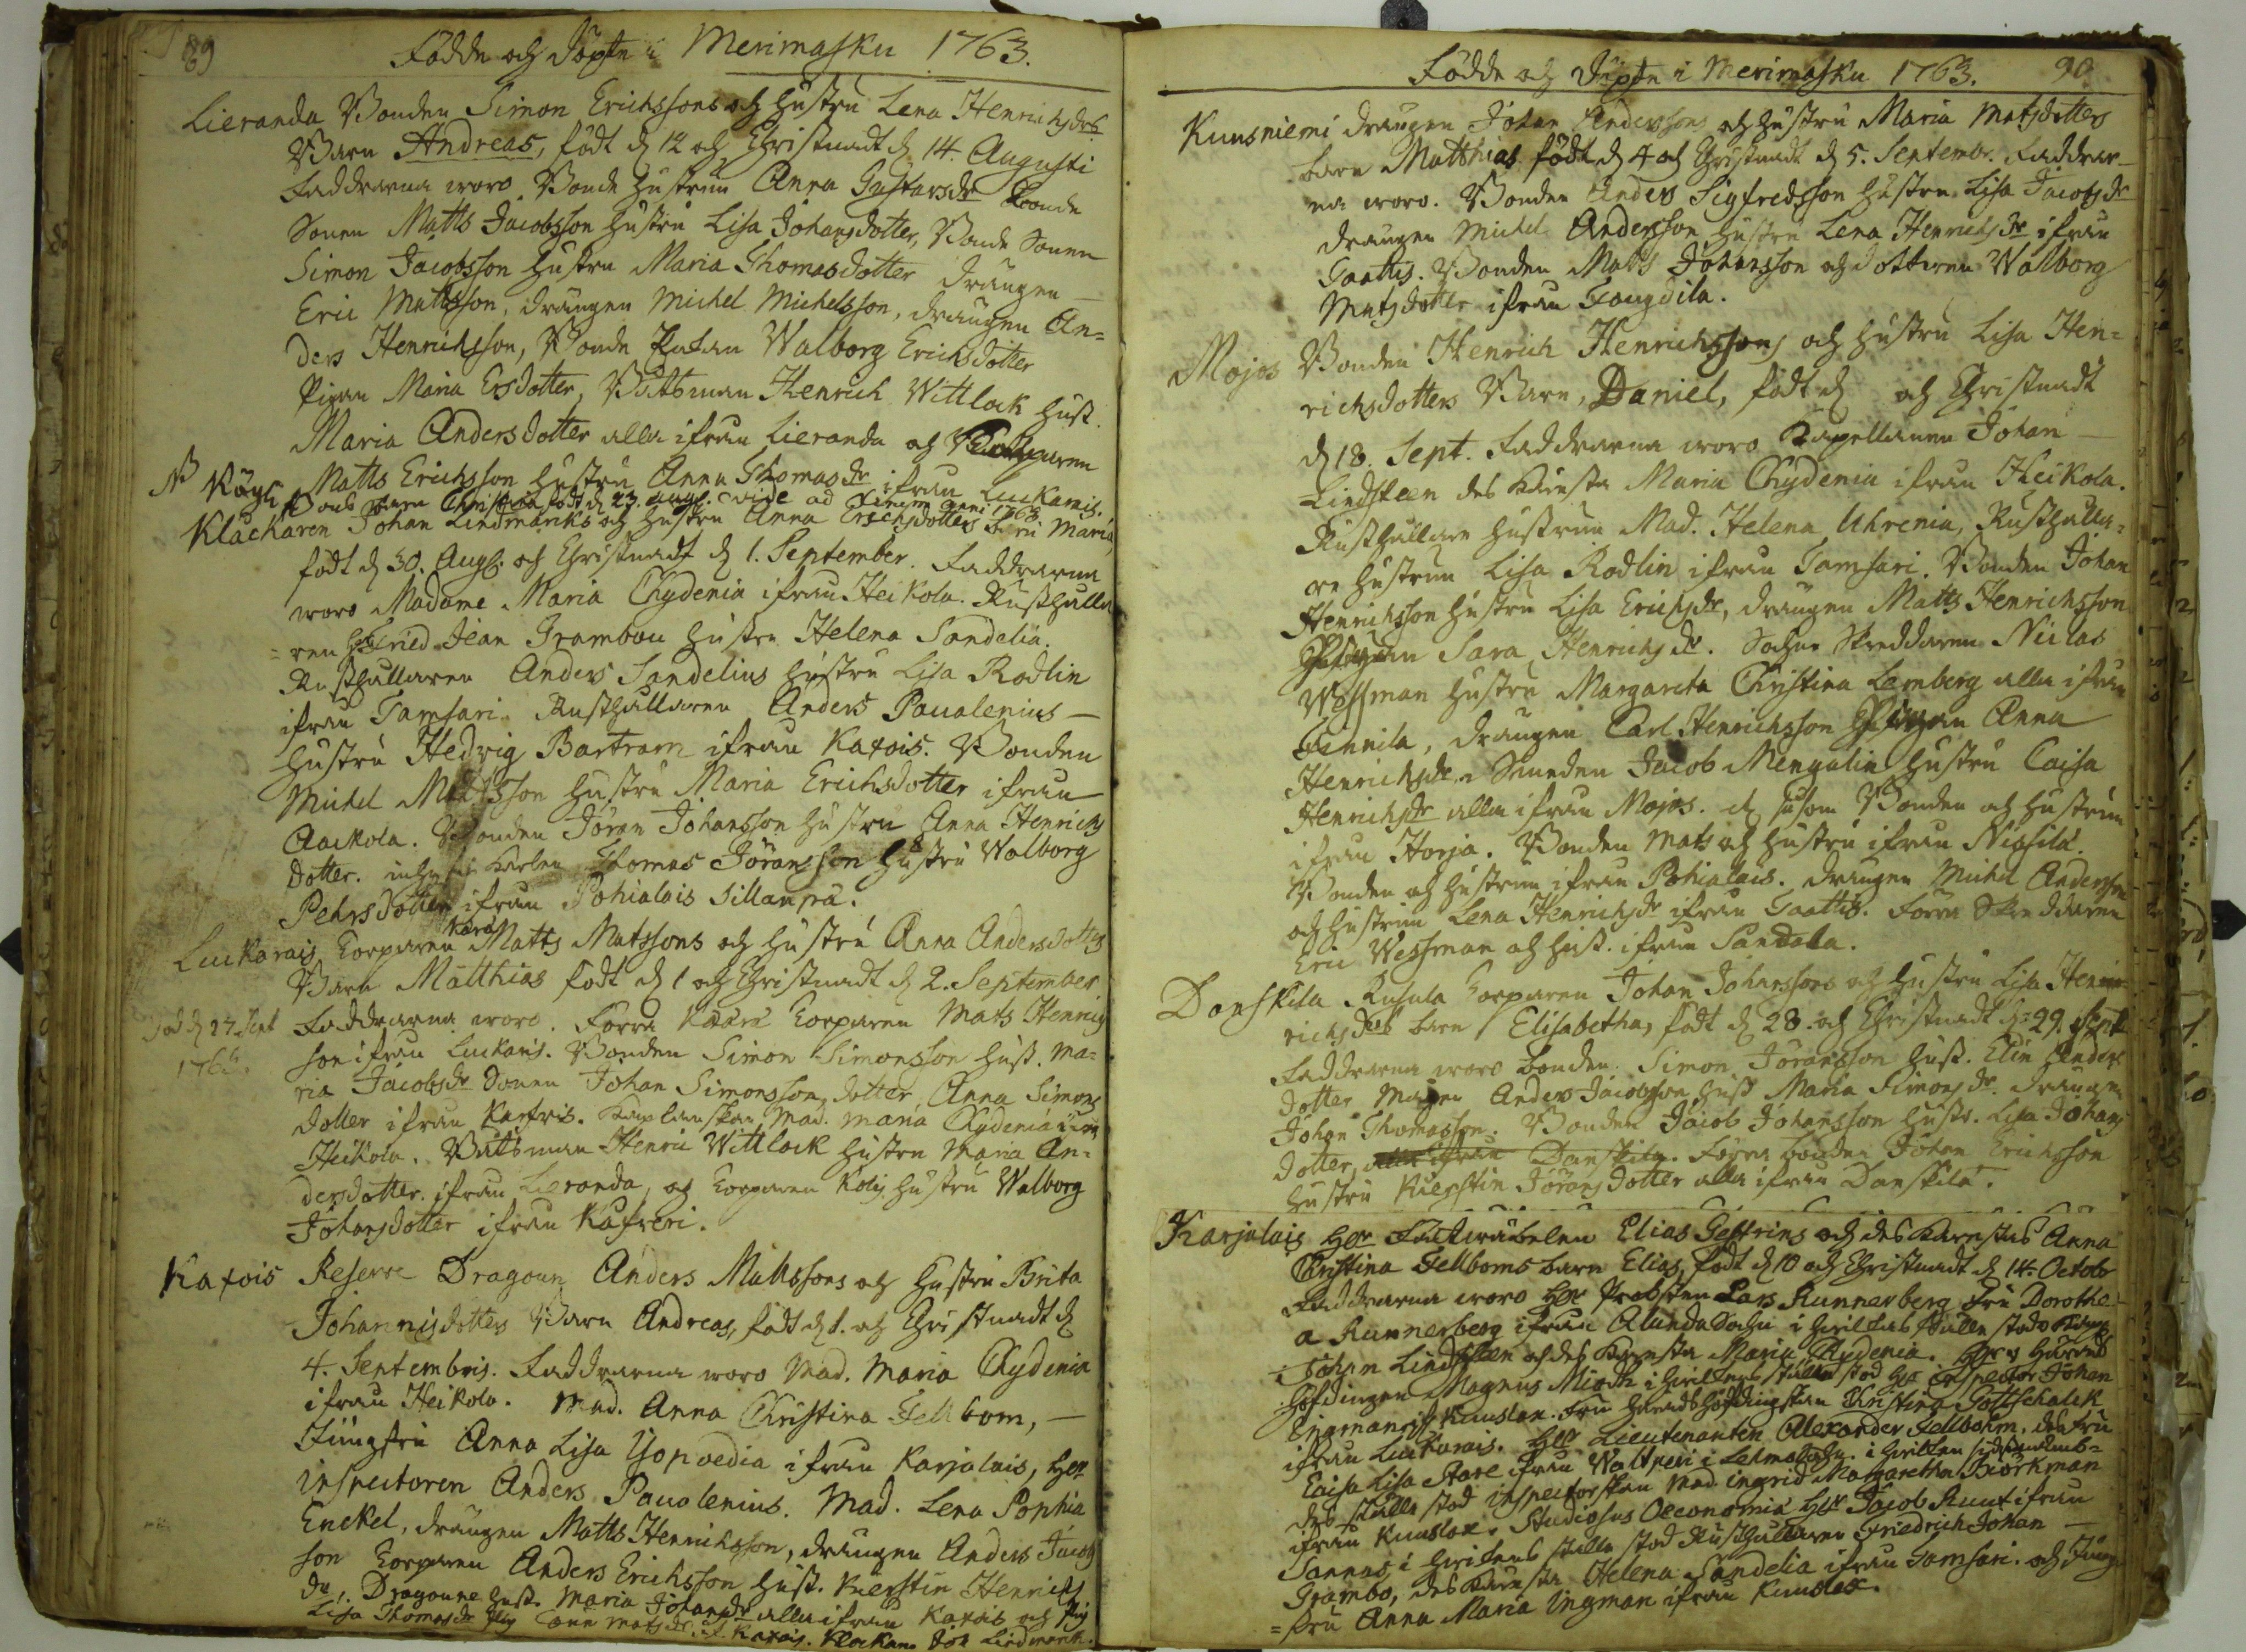 89
Födde och döpte i Merimasku 1763.
Lieranda Bonden Simon Erichssons och hustru Lena Henrichsdrs
Barn Andreas, födt d 12 och Christnadt d 14. Augusti
Faddrarna woro Bonde hustrun Anna Gustafsdr Bonde
Sonen Matts Jacobsson hustru Lisa Johansdotter, Bonde Sonen
Simon Jacobsson hustru Maria Thomasdotter drängen
Eric Mattsson, drängen Michel Michelsson, drängen An=
ders Henrichsson, Bonde Walborg Erichsdotter
Pigan Maria Ersdotter, Båtsman Henrich Wittlock hust.
Maria Andersdotter alla ifrån Lieranda och
Matts Erichsson hustru Anna Thomasdr ifrån Luckarais.
Barn Christina födt d 23. aug. vide ad finem anni 1763
Klåckaren Johan Lindmarcks och hustru Anna Erichsdotters barn Maria,
födt d 30. Aug. och Christnadt d 1. September. Faddrarna
woro Madame Maria Chydenia ifrån Heikola. Rusthålla
=ren Fried Jean Grambou hustru Helena Sandelia.
Rusthållaren Anders Sandelius hustru Lisa Rodlin
ifrån Tamsari. Rusthållaren Anders Pavalenius
hustru Hedvig Bartram ifrån Katois. Bonden
Michel Mattsson hustru Maria Erichsdotter ifrån
Aackola. Bonden Jöran Johansson hustru Anna Henrichs
dotter. Thomas Jöransson hustru Walborg
Pehrsdotter ifrån Pohialois Sillanpä.
Luckarais Torparen Kårå Matts Matssons och hustru Anna Andersdotters
Barn Matthias födt d 1 och Christnadt d 2. September
död d 27 Sept Faddrarna woro. Förra Kåårå Torparen Mats Henrichs
1763. son ifrån Luckaris. Bonden Simon Simonsson hust. Ma=
ria Jacobsdr Sonen Johan Simonsson, dotter Anna Simons
dotter ifrån Karfris. Kaplanskan Mad. Maria Chydenia ifrån
Heikola. Båtsman Henric Wittlock hustru Maria An=
dersdotter. ifrån Lieranda, och Torparen Kolis hustru Walborg
Johansdotter ifrån Kafreri.
Katois Reserve Dragoun Anders Mattssons och hustru Brita
Johannisdotters Barn Andreas, födt d 1. och Christnadt d
4. Septembris. Faddrarna woro Mad. Maria Chydenia
ifrån Heikola. Mad. Anna Christina Fellbom,
Jungfru Anna Lisa ifrån Karjalais, Herr
inspectoren Anders Pavolenius. Mad. Lena Sophia
Enckel, drängen Matts Henrichsson, drängen Anders Jacobs
son Torparen Anders Erichsson hust. Kierstin Henrichs
dr, Dragoune hust. Maria Johansdr alla ifrån Katois och Pig
Lisa Thomasdr Pig Matsdr. Katois. Klockare Joh Lindmarck.
Födde och Döpte i Merimasku 1763. 90
Kuusniemi drängen Johan Anderssons och hustru Maria Matsdotters
barn Matthias födt d 4 och Christnadt d 5. Septembr. Faddrar
na woro. Bonden Anders Sigfredsson hustru Lisa Jacobsdr
drängen Michel Andersson hustru Lena Henrichsdr ifrån
Taattis. Bonden Matts Johansson och dottren Walborg
Matsdotter ifrån Fougdila.
Mojos Bonden Henrich Henrichssons och hustru Lisa Hen=
richsdotters Barn, Daniel, födt d och Christnadt
d 18. Sept. Faddrarna woro Kapellanen Johan
Lindsteen des Kärsta Maria Chydenia ifrån Heikola.
Rusthållare hustrun Mad. Helena Uhrenia, Rusthålla=
re hustrun Lisa Rodlin ifrån Tamsari. Bonden Johan
Henrichsson hustru Lisa Erichsdr, drängen Matts Henrichsson
Pigan Sara Henrichsdr. Sochne Skreddaren Niclas
Wessman hustru Margareta Christina Lemberg alla ifrån
Tennila, drängen Carl Henrichsson Pigan Anna
Henrichsdr. Smeden Jacob Mengalin hustru Caisa
Henrichsdr alla ifrån Mojos. Bonden och hustrun
ifrån Horja. Bonden Mats och hustru ifrån Nissilä.
Bonden och hustrun ifrån Pohialais. drängen Michel Andersson
och hustrun Lena Henrichsdr ifrån Taattis. Förra Skreddaren
Eric Wessman och hust. ifrån Sandala.
Danskila Rusula Torparen Johan Johanssons och hustru Lisa Hen
richsdrs barn Elisabetha, födt d 28 och Christnadt d 29. Sept
Faddrarna woro bonden Simon Jöransson hust. Elin Anders
dotter Mågen Anders Jacobsson hust Maria Simonsdr. drängen
Johan Thomasson. Bonden Jacob Johansson hustr. Lisa Johans
dotter, alla ifrån Danskila. Förra bonden Johan Erichsson
hustru Kierstin Jöransdotter alla ifrån Danskila.
Karjalais Herr Elias Gestrins och des Kärestas Anna
Christina Fellboms barn Elias, födt d 10 och Christnadt d 14. Octobr
Faddrarna woro Herr Probsten Lars Runnerberg Fru Dorothe
a Runnerberg ifrån i hwilkas ställe stodo
Johan Lindsteen och des Kärsta Maria Chydenia. Herr Härads
höfdingen Magnus i hwilkens ställe stod Herr inspector Johan
Ingman ifrån Kuuslax. Fru häradshöfdingskan Christina Gottschalck
ifrån Luckarais. Herr Lieutenanten Alexander Fellbohm. des Fru
Caisa Lisa Stare ifrån i i hwilken
des ställe stod inspectorskan Mad. ingrid Margaretha Biörkman
ifrån Kuuslax. Studiosus Oeconomiæ Herr Jacob ifrån
Sannas i hwilkens ställe stod Rusthållaren Friedrich Johan
Grambo, des Kärsta Helena Sandelia ifrån Tamsari. och Jung
=fru Anna Maria Ingman ifrån Kuuslax.